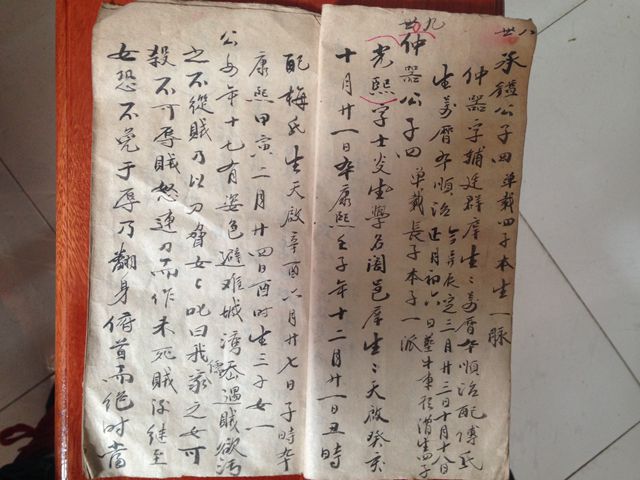 八世
承鐙公子四 单載四子本生一脉
仲器字輔廷群庠生生萬曆卒順治配傅氏
生萬曆卒順治 三月廿三日十月十八日
正月初六日 生四子
九世
仲器公子四 单載長子本子一派
光熙字士炎生學名闊邑庠生生天啟癸亥
十月廿一日卒康熙壬子年十二月廿一日丑時
配梅氏生天啟辛酉六月廿七日子時卒
康熙甲寅二月廿四日酉时生三子女一
公女年十七有姿色避难城湾 遇賊欲污
之不從賊乃以刀脅女女叱曰我家之女可
殺不可辱賊怒連刀而作未死賊後继至
女恐不免于辱乃翻身俯首而绝时當